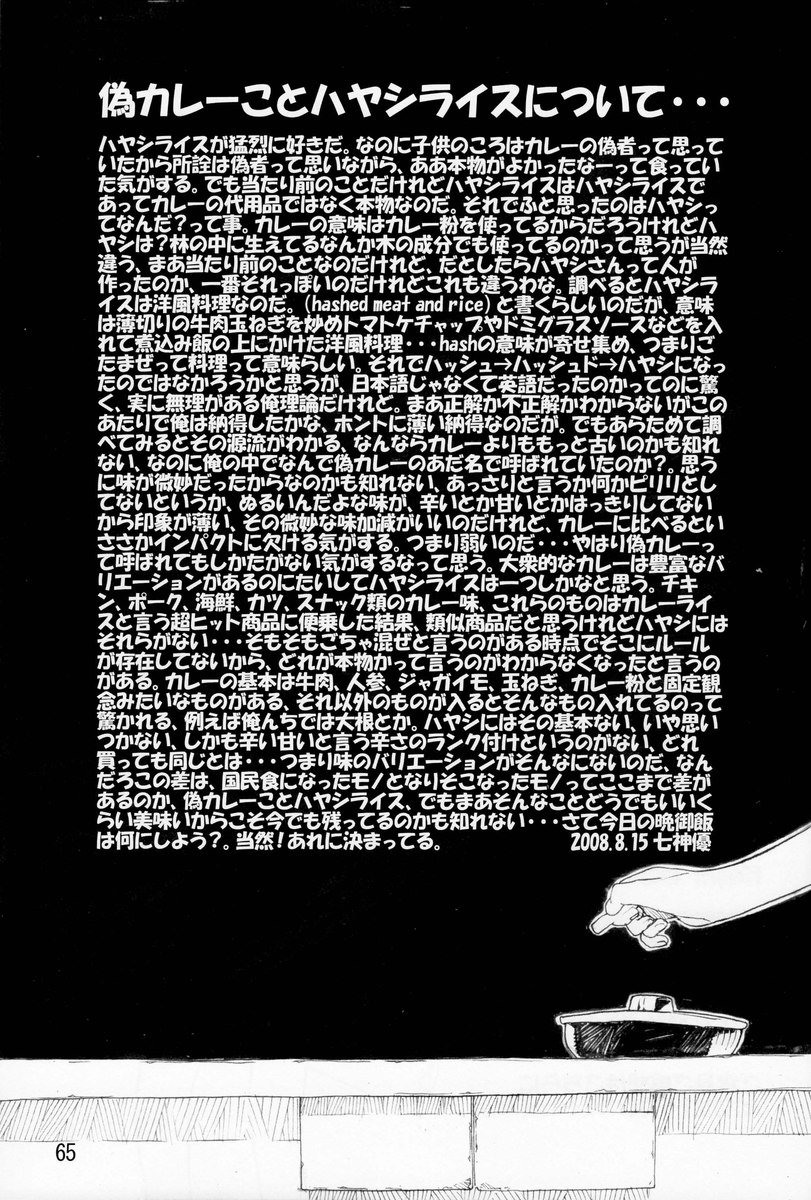 偽カレーことハヤシライスについて・・・
ハヤシライスが猛烈に好きだ。なのに子供のころはカレーの偽者って思って
いたから所詮は偽者って思いながら、ああ本物がよかったなーって食ってい
た気がする。でも当たり前のことだけれどハヤシライスはハヤシライスで
あってカレーの代用品ではなく本物なのだ。それでふと思ったのはハヤシっ
てなんだ？って事。カレーの意味はカレー粉を使ってるからだろうけれどハ
ヤシは？林の中に生えてるなんか木の成分でも使ってるのかって思うが当然
違う、まあ当たり前のことなのだけれど、だとしたらハヤシさんって人が
作ったのか、一番それっぽいのだけれどこれも違うわな。調べるとハヤシラ
イスは洋風料理なのだ。(hashed meat and rice)と書くらしいのだが、意味
は薄切りの牛肉玉ねぎを炒めトマトケチャップやドミグラスソースなどを入
れて煮込み飯の上にかけた洋風料理・・・hashの意味が寄せ集め、つまりご
たまぜって料理って意味らしい。それでハッシュ→ハッシュド→ハヤシになっ
たのではなかろうかと思うが、日本語じゃなくて英語だったのかってのに驚
く、実に無理がある俺理論だけれど。まあ正解か不正解かわからないがこの
あたりで俺は納得したかな、ホントに薄い納得なのだが。でもあらためて調
べてみるとその源流がわかる、なんならカレーよりももっと古いのかも知れ
ない、なのに俺の中でなんで偽カレーのあだ名で呼ばれていたのか？。思う
に味が微妙だったからなのかも知れない、あっさりと言うか何かピリリとし
てないというか、ぬるいんだよな味が、辛いとか甘いとかはっきりしてない
から印象が薄い、その微妙な味加減がいいのだけれど、カレーに比べるとい
ささかインパクトに欠ける気がする。つまり弱いのだ・・・やはり偽カレーっ
て呼ばれてもしかたがない気がするなって思う。大衆的なカレーは豊富なバ
リエーションがあるのにたいしてハヤシライスは一つしかなと思う。チキ
ン、ポーク、海鮮、カツ、スナック類のカレー味、これらのものはカレーライ
スと言う超ヒット商品に便乗した結果、類似商品だと思うけれどハヤシには
それらがない・・・そもそもごちゃ混ぜと言うのがある時点でそこにルール
が存在してないから、どれが本物かって言うのがわからなくなったと言うの
がある。カレーの基本は牛肉、人参、ジャガイモ、玉ねぎ、カレー粉と固定観
念みたいなものがある、それ以外のものが入るとそんなもの入れてるのって
驚かれる、例えば俺んちでは大根とか。ハヤシにはその基本ない、いや思い
つかない、しかも辛い甘いと言う辛さのランク付けというのがない、どれ
買っても同じとは・・・つまり味のバリエーションがそんなにないのだ、なん
だろこの差は、国民食になったモノとなりそこなったモノってここまで差が
あるのか、偽カレーことハヤシライス、でもまあそんなことどうでもいいく
らい美味いからこそ今でも残ってるのかも知れない・・・さて今日の晩御飯
は何にしよう？。当然！あれに決まってる。 2008.8.15 七神優
65